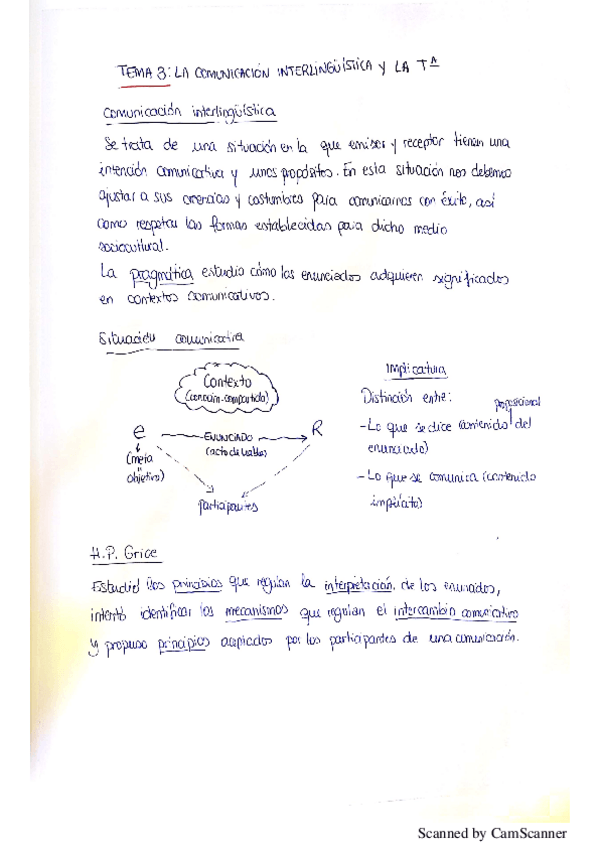 TEMA 3: LA COMUNICACIÓN INTERLINGÜÍSTICA Y LA Tª
Comunicación interlingüística
Se trata de una situación en la que emisor y receptor tienen una
intención comunicativa y unos propósitos. En esta situación nos debemos
ajustar a sus creencias y costumbres para comunicarnos con éxito, así
como respetar las formas establecidas para dicho medio
sociocultural.
La pragmática estudia cómo los enunciados adquieren significados
en contextos comunicativos.
Situación comunicativa
Contexto
e
ENUNCIADO
(acto de habla)
R
(meta
u
objetivo)
participantes
Implicatura
Distinción entre:
-Lo que se dice (contenido proposicional del
enunciado)
-Lo que se comunica (contenido
implícito)
H.P. Grice
Estudió los principios que regulan la interpretación de los enunciados,
intentó identificar los mecanismos que regulan el intercambio comunicativo
y propuso principios aceptados por los participantes de una comunicación.
Scanned by CamScanner